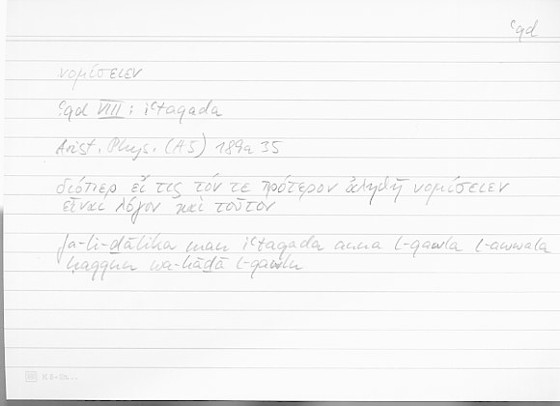 ʿqd
νομίσειεν
ʿqd VIII : iʿtaqada
Arist. Phys. (A5) 189a 35
διόπερ εἴ τις τόν τε πρότερον ἀληθῆ νομίσειεν
εἶναι λόγον καὶ τοῦτον
fa-li-ḏālika man iʿtaqada anna l-qawla l-awwala
ḥaqqun wa-hāḏā l-qawla